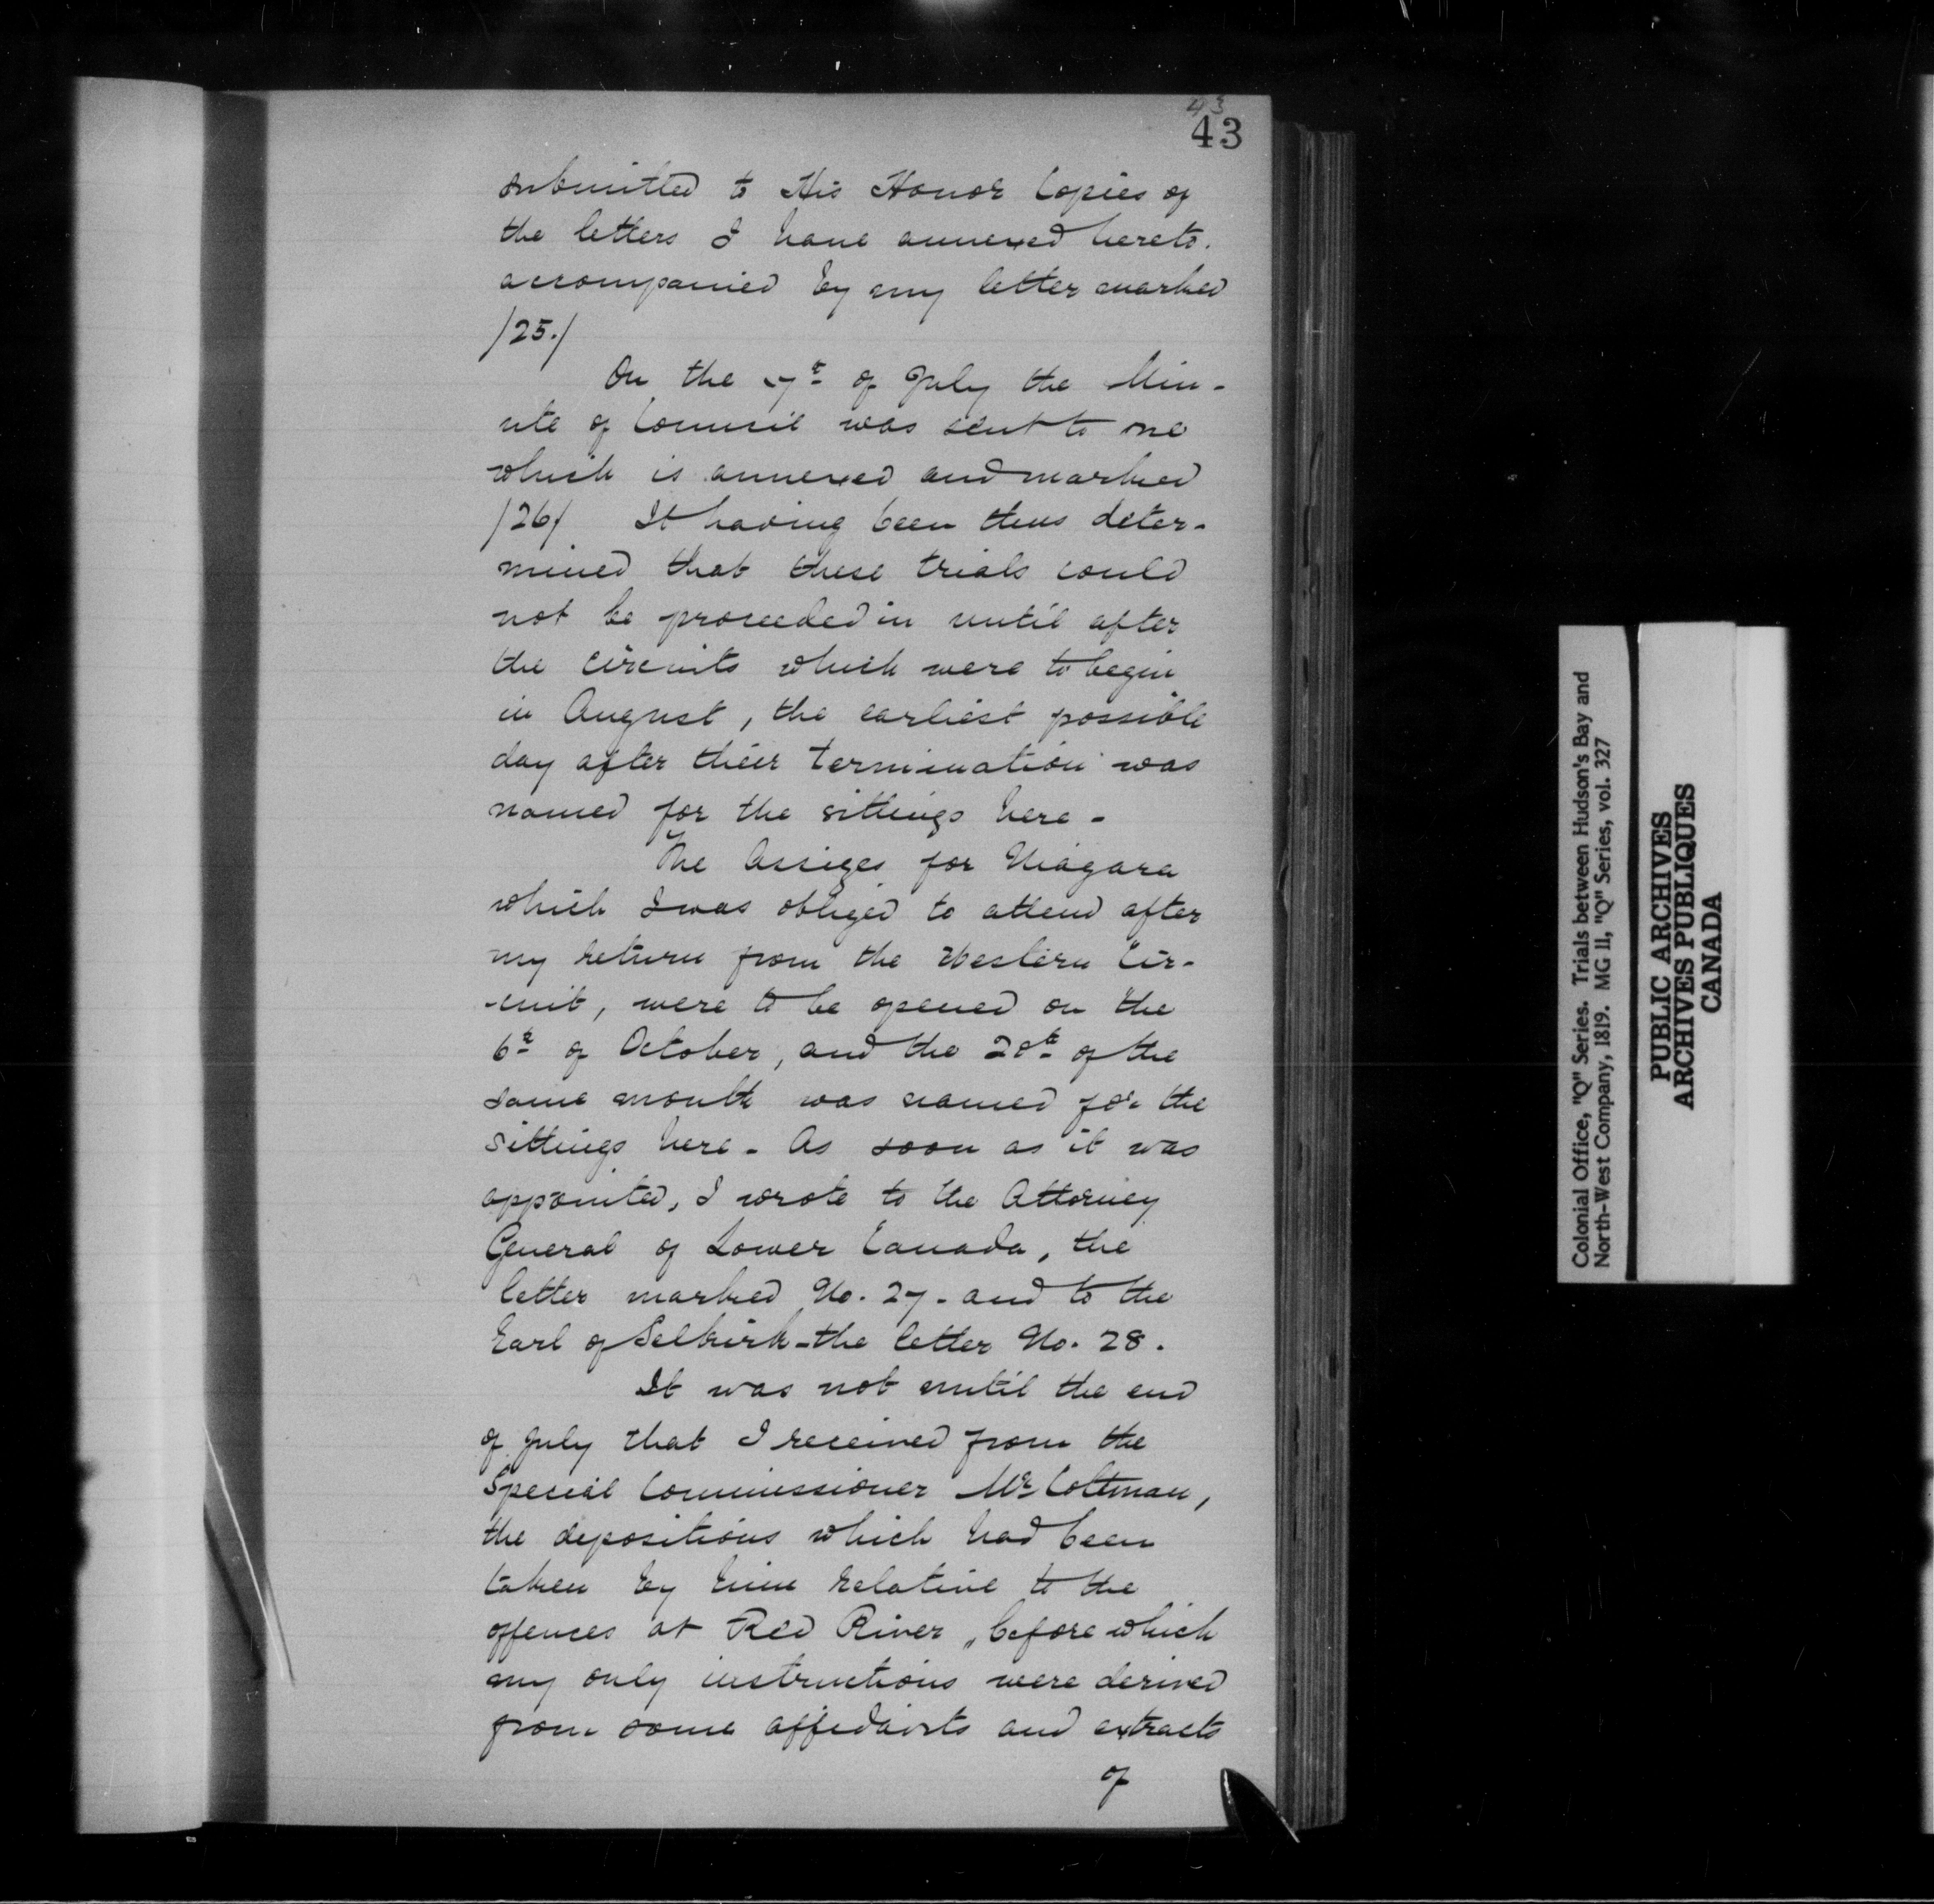 43
43
submitted to His Honor Copies of
the letters I have annexed hereto.
accompanied by my letter marked
/25./
On the 7th of July the Min-
ute of Council was sent to me
which is annexed and marked
/26/ It having been thus deter-
mined that these trials could
not be proceeded in until after
the circuits which were to begin
in August, the earliest possible
day after their termination was
named for the sittings here -
The Assizes for Niagara
which I was obliged to attend after
my return from the Western Cir-
-cuit, were to be opened on the
6th of October, and the 20th of the
same month was named for the
sittings here - As soon as it was
appointed, I wrote to the Attorney
General of Lower Canada, the
letter marked No. 27 - and to the
Earl of Selkirk - the letter No. 28.
It was not until the end
of July that I received from the
Special Commissioner Mr Coltman,
the depositions which had been
taken by him relative to the
offences at Red River, before which
my only instructions were derived
from some affidavits and extracts
of
Colonial Office, "Q" Series. Trials between Hudson's Bay and
North-West Company, 1819. MG 11, "Q" Series, vol. 327
PUBLIC ARCHIVES
ARCHIVES PUBLIQUES
CANADA